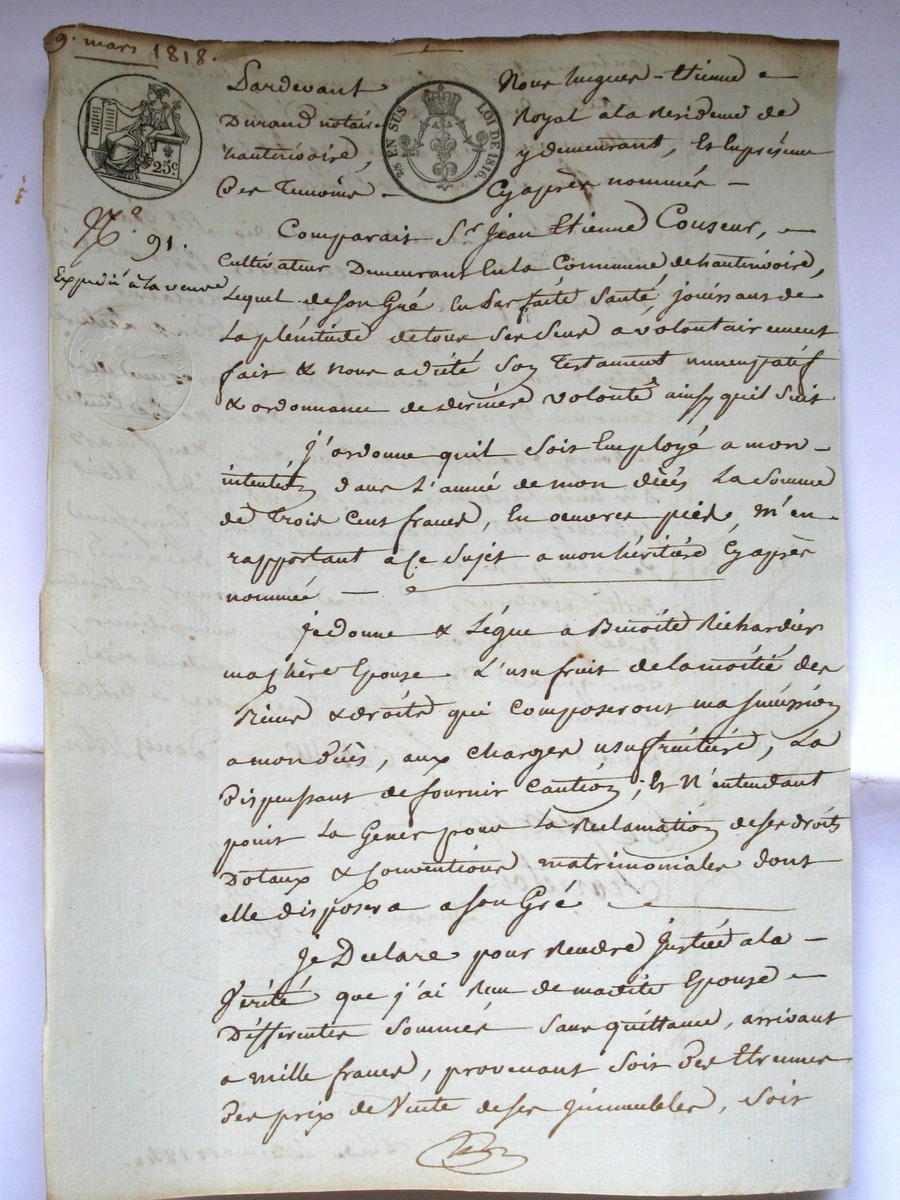 9. mars 1818.
Pardevant Nous hugues - Etienne
Durand notaire Royal à la Residence de
hauterivoire, y demeurant, Et En présence
Des Temoins - Cy après nommés -
25c
EN SUS
LOI DE 1816.
No. 91.
Expédié à la veuve
Comparait Sr. Jean Etienne Couzeur,
Cultivateur Demeurant En la Commune de hauterivoire,
Lequel de son Gré En Parfaite Santé, jouissant de
La plénitude de tous Ses Sens a volontairement
fait & nous a dicté Son Testament nuncupatif
& ordonnance de dernière volonté ainsy quil Suit
J'ordonne quil Soit Employé a mon
intention dans L'année de mon décès La Somme
de Trois Cent francs, En oeuvres pies, M'en
rapportant à Ce Sujet a mon héritière Cy après
nommée
Je donne & Lègue a Benoite Richardier
ma Chère Epouse L'usufruit de la moitié des
Biens & droits qui Composeront ma Succession
a mon Décès, aux Charges usufruitière, La
Dispensant de fournir Caution, Et N'entendant
point La Gener pour La Réclamation de ses droits
Dotaux & Conventions matrimoniales dont
elle disposera a son Gré
Je Déclare pour Rendre Justice a la
Vérité que j'ai Reçu de madite Epouse
Différentes Sommes Sans quittance, arrivant
a mille francs, provenant Soit des Etrennes
des prix de Vente de ses Immeubles, Soit